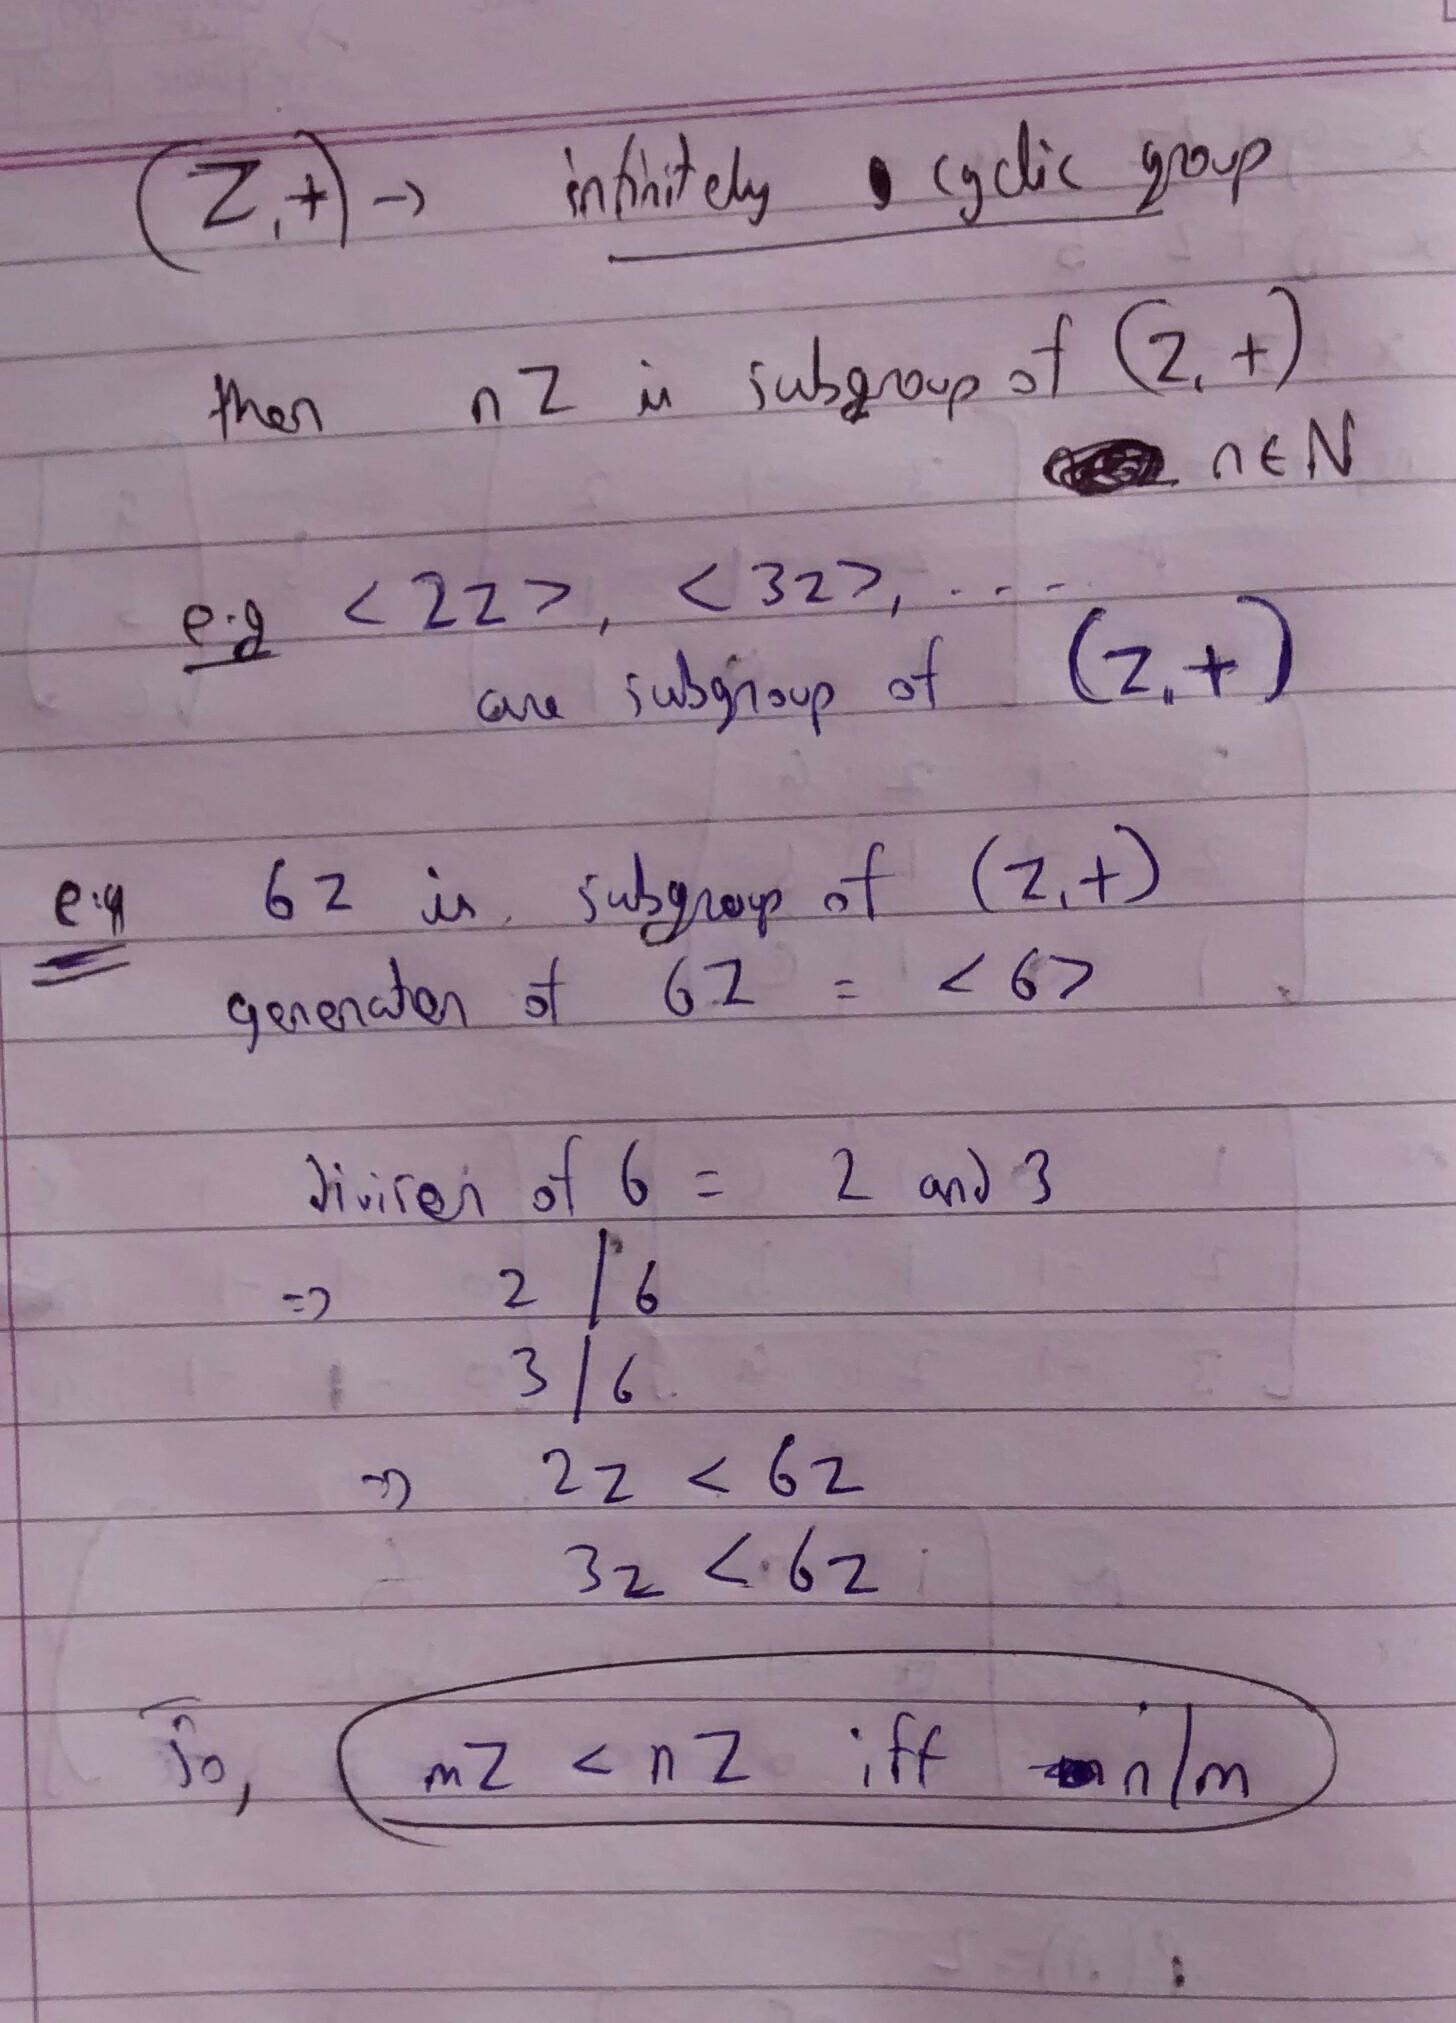 (Z,+) → infinitely cyclic group
then nZ is subgroup of (Z,+)
n∈N
e.g <2Z>, <3Z>, ....
are subgroup of (Z,+)
e.g 6Z is subgroup of (Z,+)
generator of 6Z = <6>
divisor of 6 = 2 and 3
⇒ 2/6
3/6
⇒ 2Z < 6Z
3Z < 6Z
So, mZ < nZ iff n/m